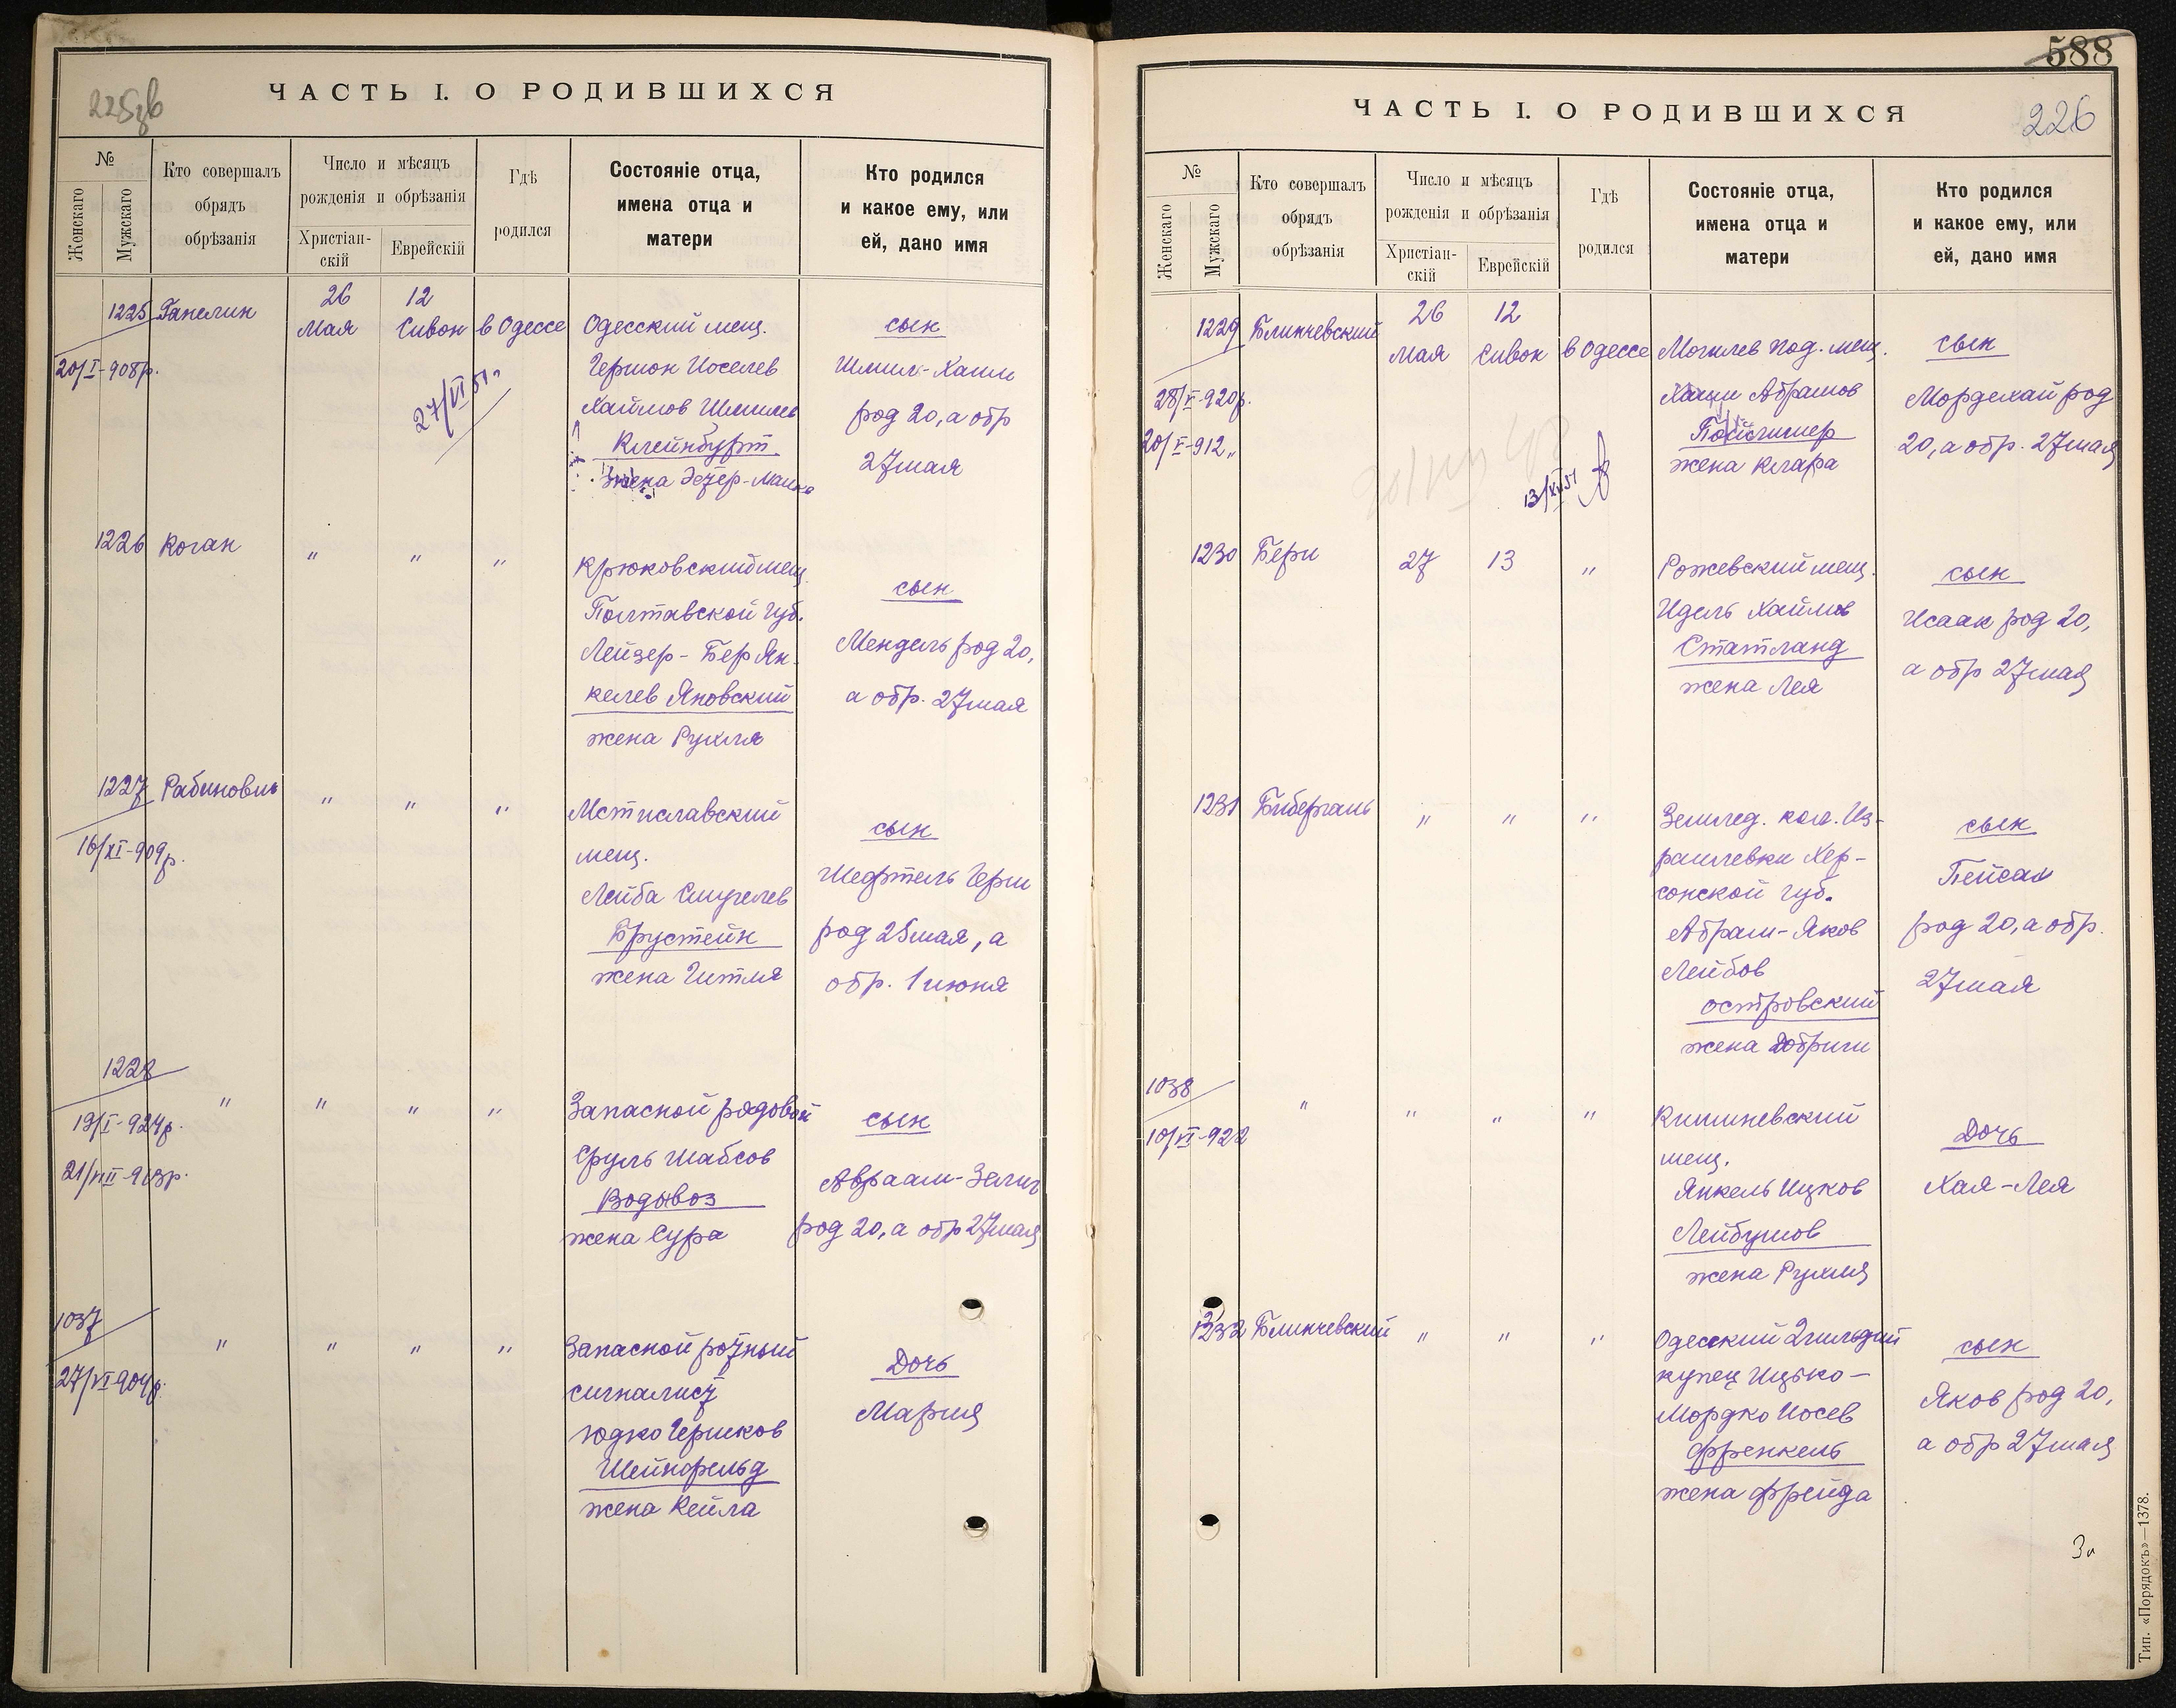 225зв
ЧАСТЬ I. О РОДИВШИХСЯ
№
Женскаго
Мужскаго
Кто совершалъ
обрядъ
обрѣзанія
Число и мѣсяцъ
рожденія и обрѣзанія
Христіан-
скій
Еврейскій
Гдѣ
родился
Состояніе отца,
имена отца и
матери
Кто родился
и какое ему, или
ей, дано имя
1225
20/I-908р.
Ганелин
26
Мая
12
Сивон
в Одессе
27/VI 51 г.
Одесский мещ.
Гершон Иоселев
Хаимов Шмилев
Клейнбурт
жена Эстер-Малка
сын
Шмил-Хаим
род 20, а обр
27 мая
1226
Коган
"
"
"
Крюковский мещ.
Полтавской губ.
Лейзер-Бер Ян-
келев Яновский
жена Рухля
сын
Мендель род 20,
а обр. 27 мая
1227
16/XI-909р.
Рабинович
"
"
"
Мстиславский
мещ.
Лейба
Брустейн
жена Гитля
сын
Шефтель Герш
род 25 мая, а
обр. 1 июня
1228
19/I-924р.
21/VIII-913р.
"
"
"
"
Запасной рядовой
Сруль Шабсов
Водовоз
жена Сура
сын
Авраам-Зелиг
род 20, а обр 27 мая
1037
27/VI-904р.
"
"
"
"
Запасной ротный
сигналист
Юдко Гершков
Шейнфельд
жена Кейла
Дочь
Мария
588
226
ЧАСТЬ I. О РОДИВШИХСЯ
№
Женскаго
Мужскаго
Кто совершалъ
обрядъ
обрѣзанія
Число и мѣсяцъ
рожденія и обрѣзанія
Христіан-
скій
Еврейскій
Гдѣ
родился
Состояніе отца,
имена отца и
матери
Кто родился
и какое ему, или
ей, дано имя
1229
28/V-920р.
20/V-912 "
Блинчевский
26
Мая
12
Сивон
в Одессе
13/XII 51
Могилев Под. мещ.
Абрамов
жена Клара
сын
Мордехай род
20, а обр. 27 мая
1230
Бери
27
13
"
Рожевский мещ.
Идель Хаимов
Статланд
жена Лея
сын
Исаак род 20,
а обр 27 мая
1231
Бибергаль
"
"
"
Землед. кол. Из-
раилевки Хер-
сонской губ.
Абрам-Яков
Лейбов
Островский
жена Добриш
сын
Пейсах
род 20, а обр.
27 мая
1038
10/VI-922
"
"
"
"
Кишиневский
мещ.
Янкель Ицков
Лейбушов
жена Рухля
Дочь
Хая-Лея
1232
Блинчевский
"
"
"
Одесский 2 гильдии
купец Ицько-
Мордко Иосев
Френкель
жена Фрейда
сын
Яков род 20,
а обр 27 мая
Тип. «Порядокъ»—1378.